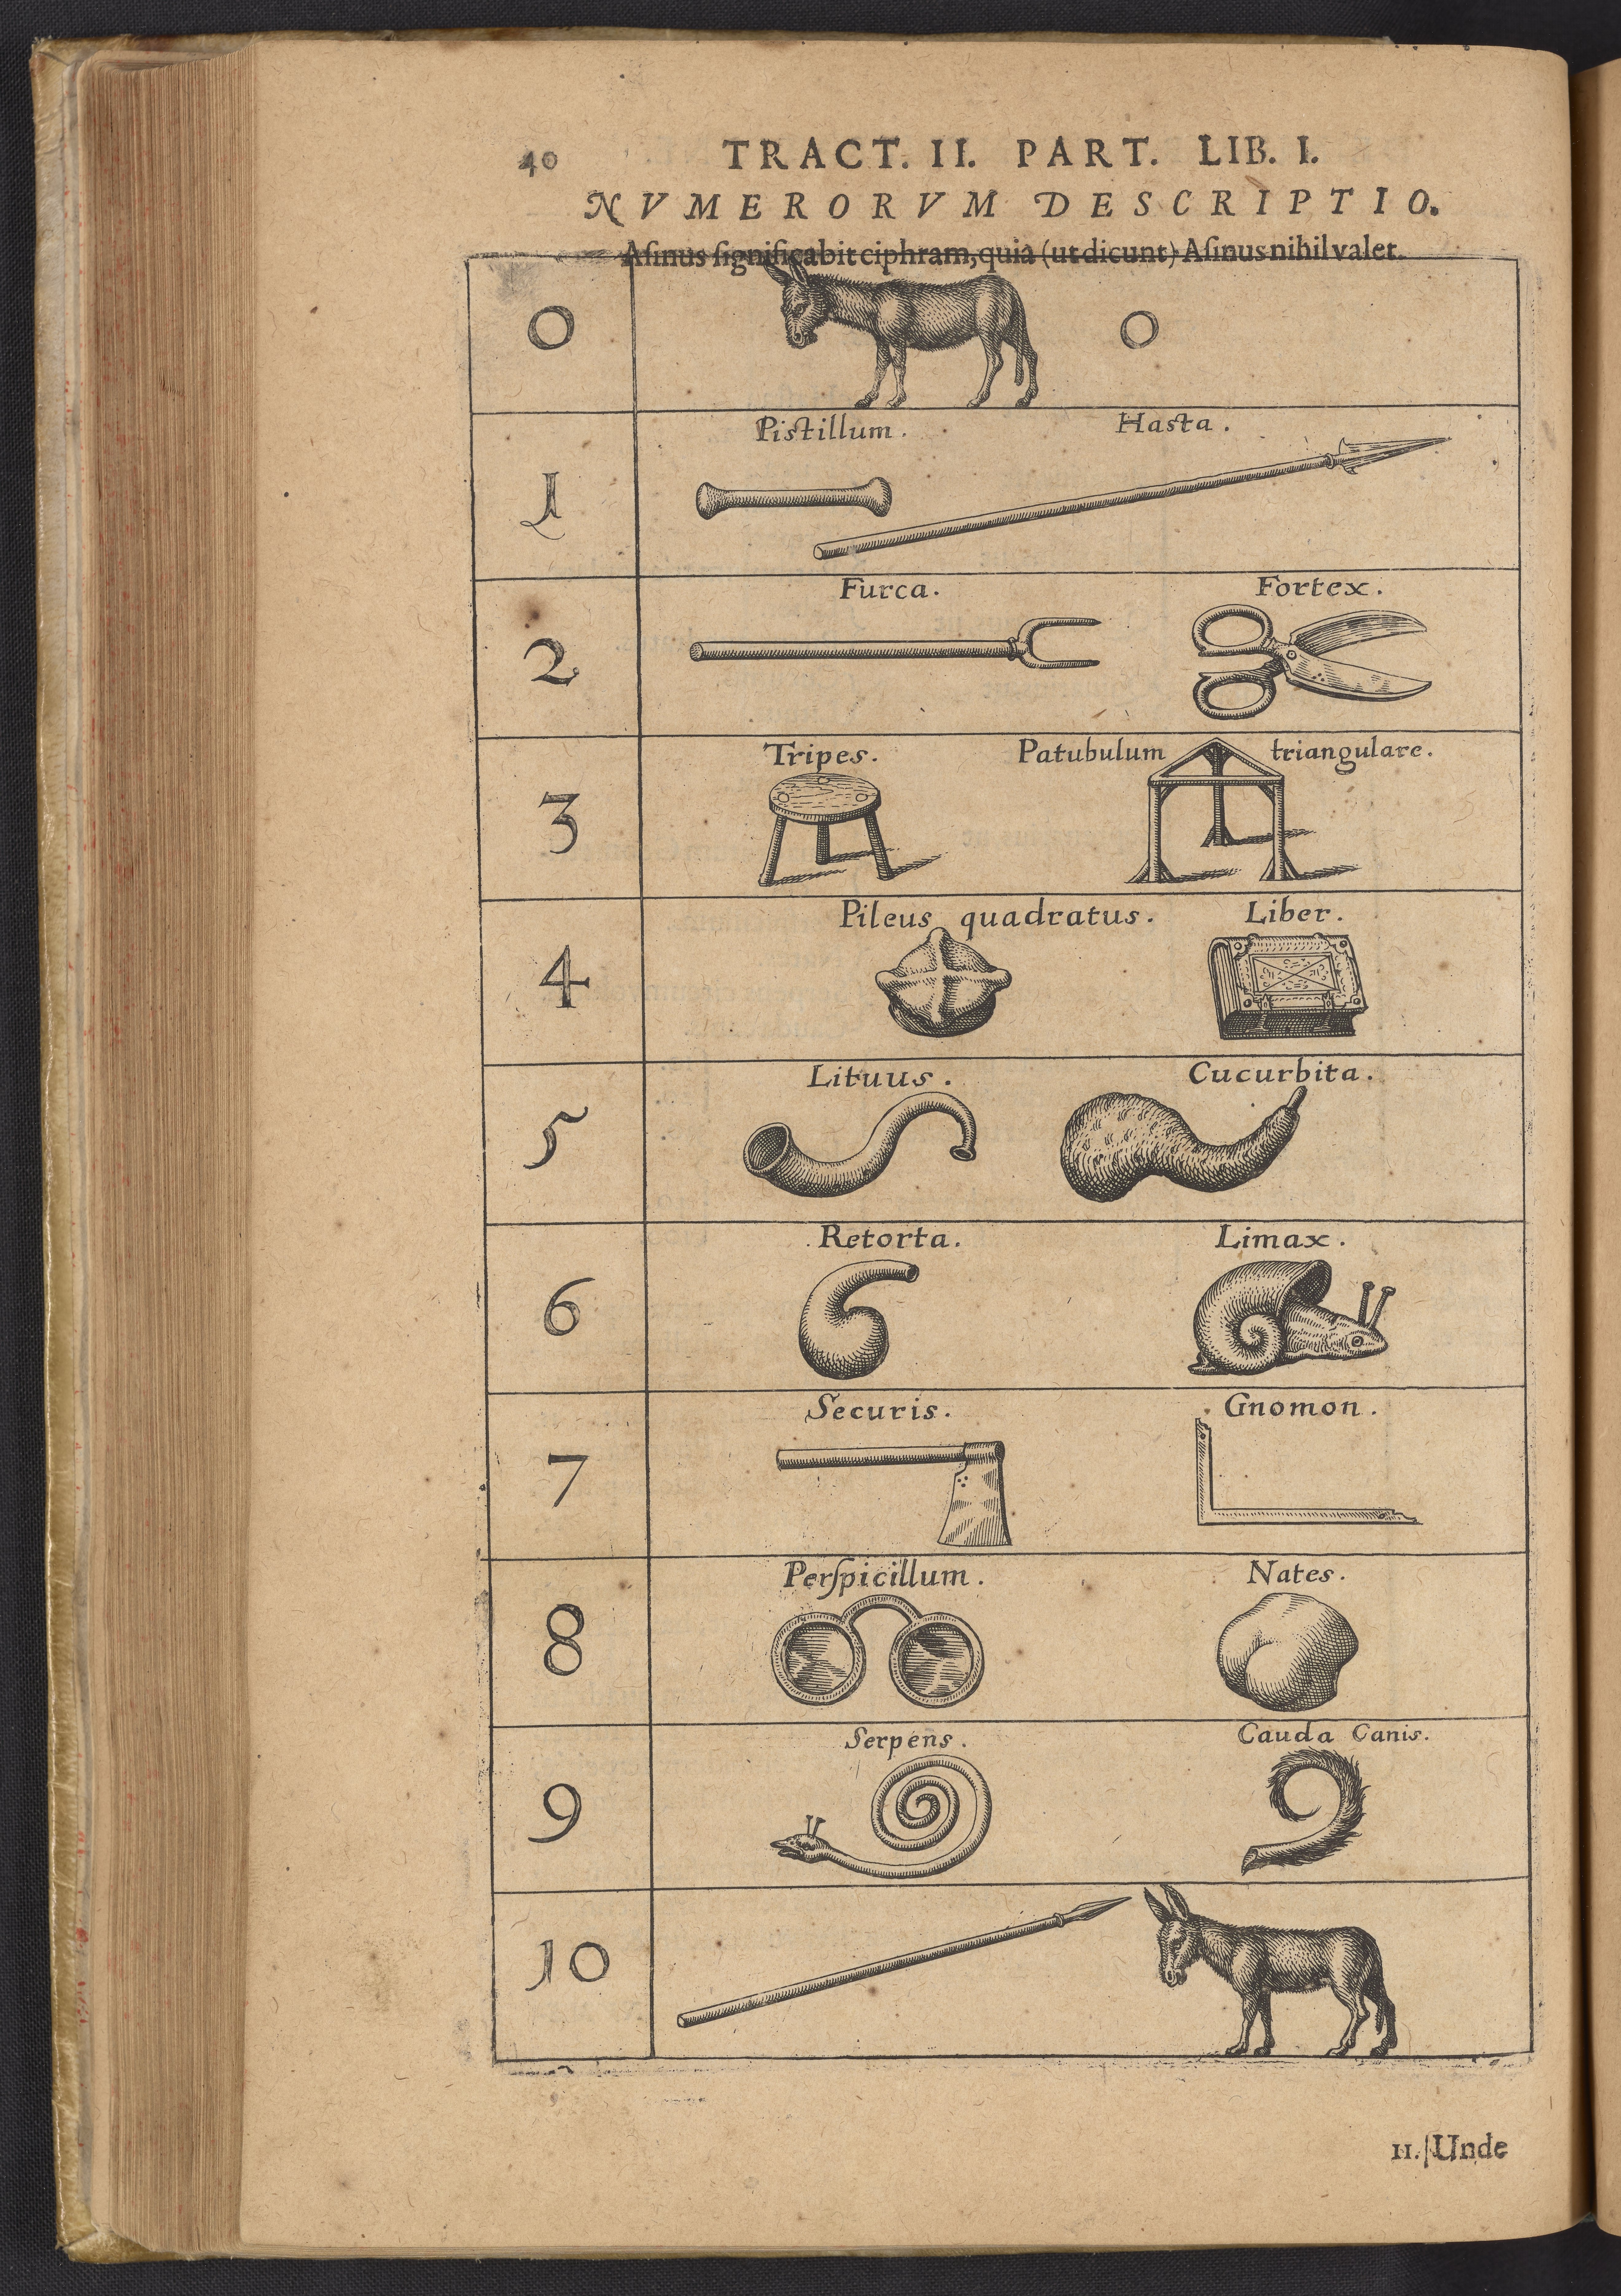 40 TRACT. II. PART. LIB. I.
NVMERORVM DESCRIPTIO.
Aſinus ſignificabit ciphram, quia (ut dicunt) Aſinus nihil valet.
0 0
Pistillum. Hasta.
1
Furca. Fortex.
2
Tripes. Patubulum triangulare.
3
Pileus quadratus. Liber.
4
Lituus. Cucurbita.
5
Retorta. Limax.
6
Securis. Gnomon.
7
Perſpicillum. Nates.
8
Serpens. Cauda Canis.
9
10
II. Unde